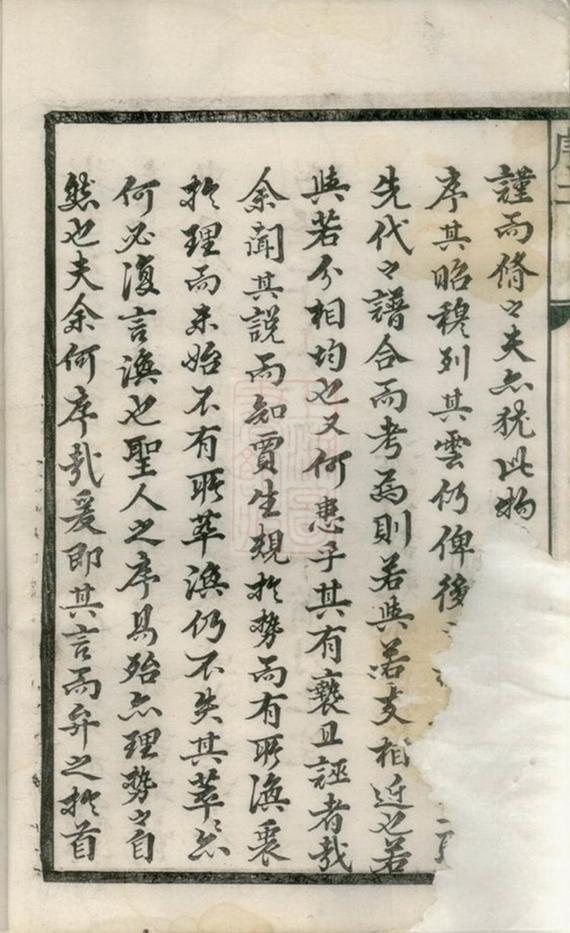 謹而脩々夫亦猶此物
序其昭穆列其雲仍俾後
先代々譜合而考焉則若與若支相近也若
與若分相均也又何患乎其有褻且誣者哉
余聞其說而知賈生規於勢而有所渙裹
於理而未始不有所萃渙仍不失其萃々亦
何必復言渙也聖人之序易殆亦理勢々自
然也夫余何序哉爰即其言而弁之於首